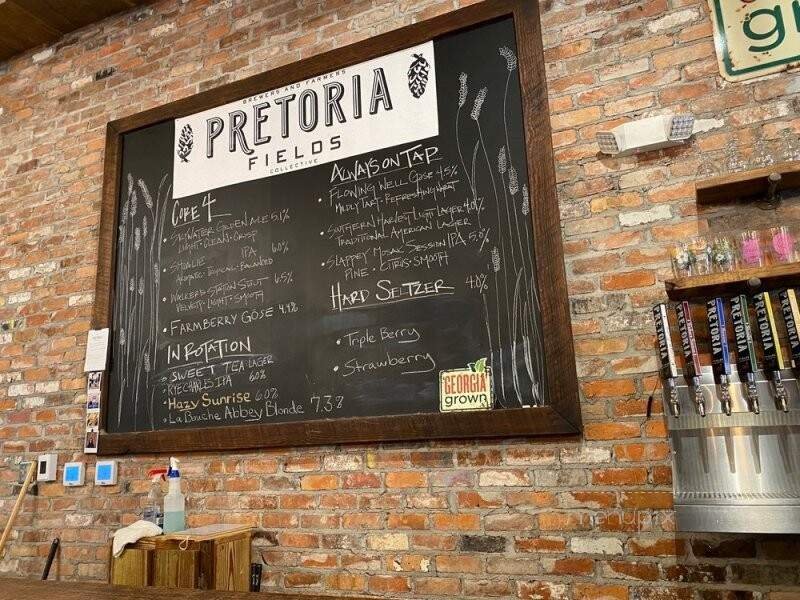 BREWERS AND FARMERS
PRETORIA
FIELDS
COLLECTIVE
CORE 4
GOLDEN ALE 5.1%
LIGHT · CLEAN · CRISP
SHOALIE IPA 6.0%
AROMATIC · TROPICAL · BALANCED
WALKERS STATION STOUT 6.5%
VELVETY · LIGHT · SMOOTH
FARMBERRY GOSE 4.4%
IN ROTATION
SWEET TEA LAGER
RYE CHARLES IPA 6.0%
Hazy Sunrise 6.0%
La Bouche Abbey Blonde 7.3%
ALWAYS ON TAP
FLOWING WELL GOSE 4.5%
MILDLY TART · REFRESHING
SOUTHERN HARVEST LIGHT LAGER 4.0%
TRADITIONAL AMERICAN LAGER
SLAPPEY MOSAIC SESSION IPA 5.0%
PINE · CITRUS · SMOOTH
HARD SELTZER 4.8%
Triple Berry
Strawberry
GEORGIA
grown
gr
PRETORIA
PRETORIA
PRETORIA
PRETORIA
PRETORIA
PRETORIA
menupix